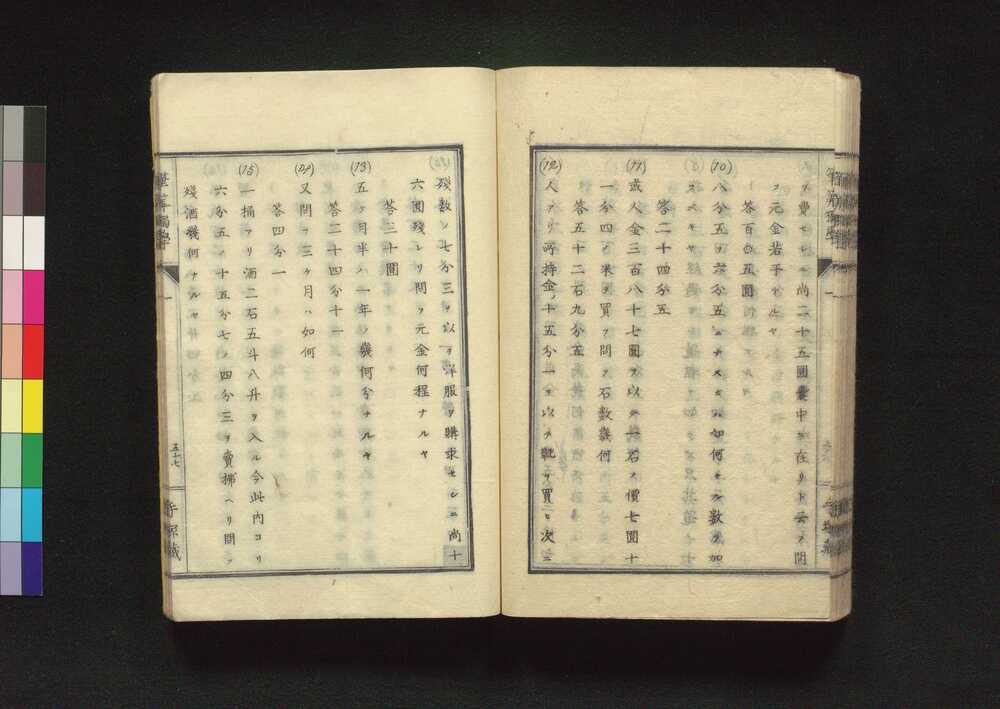 ヲ費セシニ尚二十五圓嚢中ニ在リト云フ問
フ元金若干ナルヤ
答百〇五圓
(10) 八分五ヲ六分五ニナスニハ如何ナル数ヲ加
フベキヤ
答二十四分五
(11) 或人金三百八十七圓ヲ以テ一石ノ價七圓十
一分四ノ米ヲ買フ問フ石数幾何
答五十二石九分五
(12) 人アリ所持金ノ十五分一ヲ以テ靴ヲ買ヒ次ニ
残数ノ七分三ヲ以テ洋服ヲ購求セシニ尚十
六圓残レリ問フ元金何程ナルヤ
答三十圓
(13) 五ヶ月半ハ一年ノ幾何分ナルヤ
答二十四分十一
(14) 又問フ三ヶ月ハ如何
答四分一
(15) 一桶アリ酒二石五斗八升ヲ入ル今此内ヨリ
六分五ノ十五分七ノ四分三ヲ賣拂ヘリ問フ
残酒幾何ナルヤ
五十七